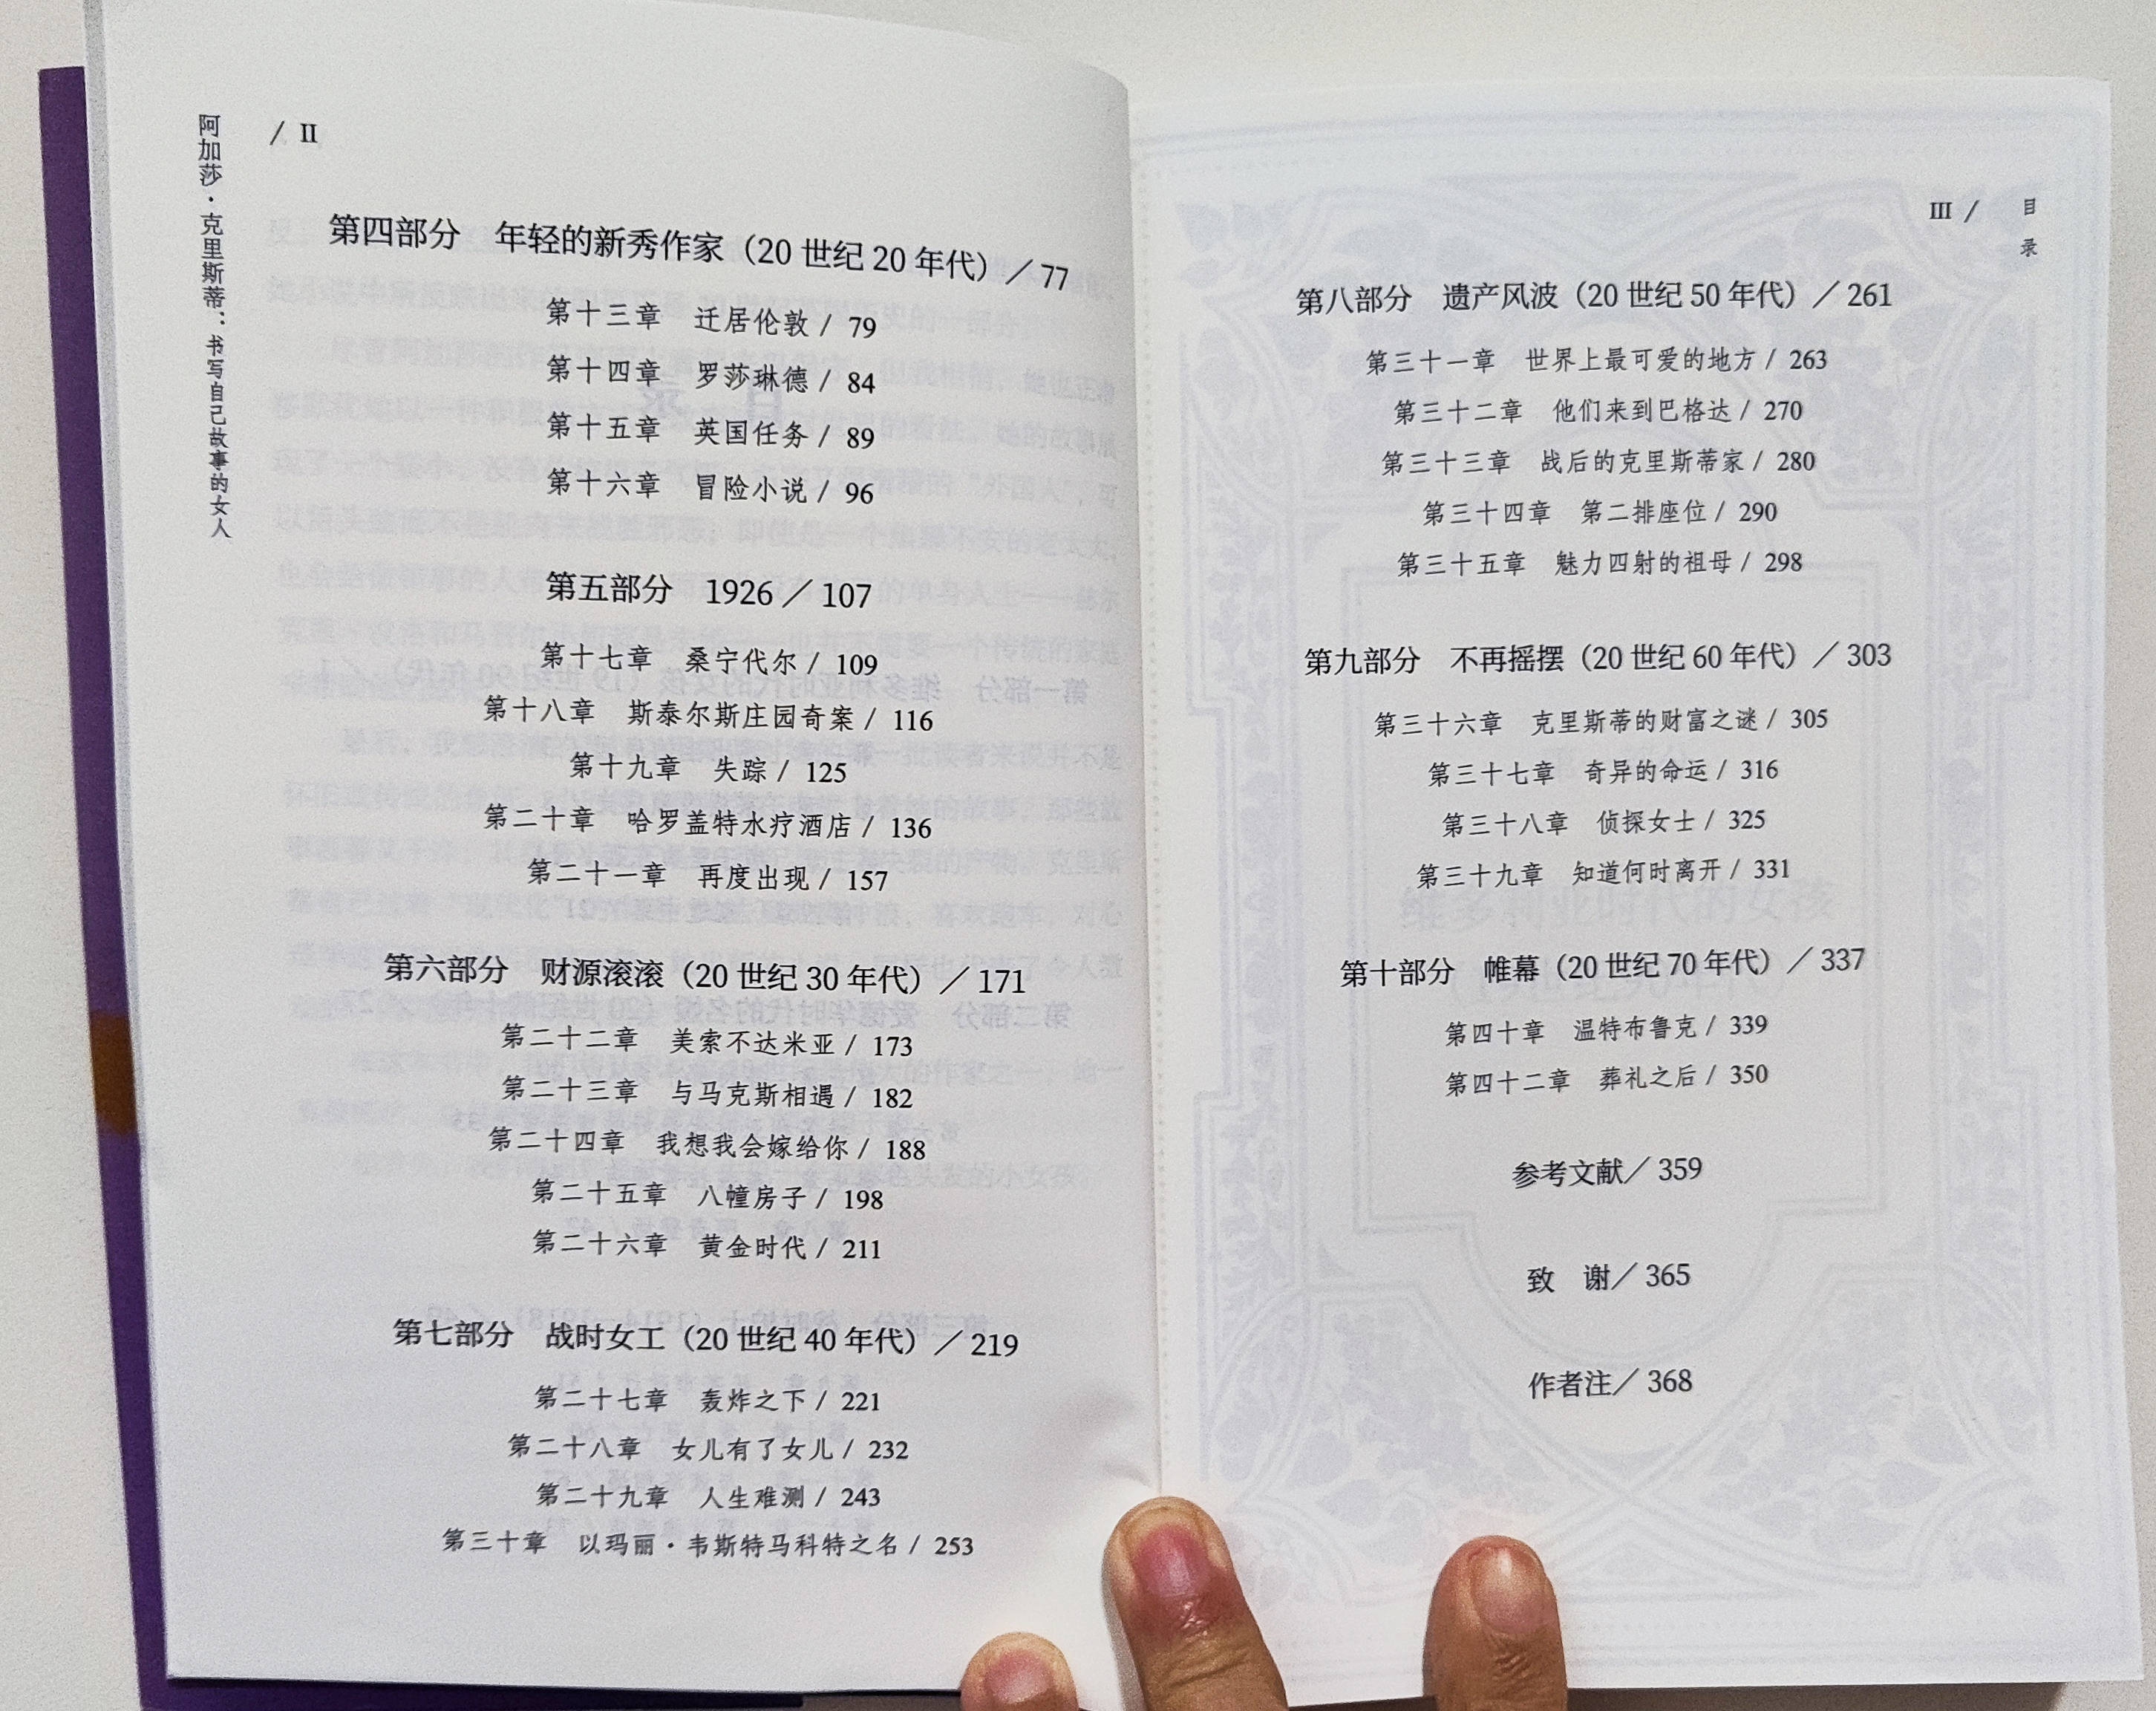 / II
阿加莎·克里斯蒂：书写自己故事的女人
第四部分 年轻的新秀作家（20 世纪 20 年代）／ 77
第十三章 迁居伦敦 / 79
第十四章 罗莎琳德 / 84
第十五章 英国任务 / 89
第十六章 冒险小说 / 96
第五部分 1926 ／ 107
第十七章 桑宁代尔 / 109
第十八章 斯泰尔斯庄园奇案 / 116
第十九章 失踪 / 125
第二十章 哈罗盖特水疗酒店 / 136
第二十一章 再度出现 / 157
第六部分 财源滚滚（20 世纪 30 年代）／ 171
第二十二章 美索不达米亚 / 173
第二十三章 与马克斯相遇 / 182
第二十四章 我想我会嫁给你 / 188
第二十五章 八幢房子 / 198
第二十六章 黄金时代 / 211
第七部分 战时女工（20 世纪 40 年代）／ 219
第二十七章 轰炸之下 / 221
第二十八章 女儿有了女儿 / 232
第二十九章 人生难测 / 243
第三十章 以玛丽·韦斯特马科特之名 / 253
III /
目录
第八部分 遗产风波（20 世纪 50 年代）／ 261
第三十一章 世界上最可爱的地方 / 263
第三十二章 他们来到巴格达 / 270
第三十三章 战后的克里斯蒂家 / 280
第三十四章 第二排座位 / 290
第三十五章 魅力四射的祖母 / 298
第九部分 不再摇摆（20 世纪 60 年代）／ 303
第三十六章 克里斯蒂的财富之谜 / 305
第三十七章 奇异的命运 / 316
第三十八章 侦探女士 / 325
第三十九章 知道何时离开 / 331
第十部分 帷幕（20 世纪 70 年代）／ 337
第四十章 温特布鲁克 / 339
第四十二章 葬礼之后 / 350
参考文献／ 359
致 谢／ 365
作者注／ 368